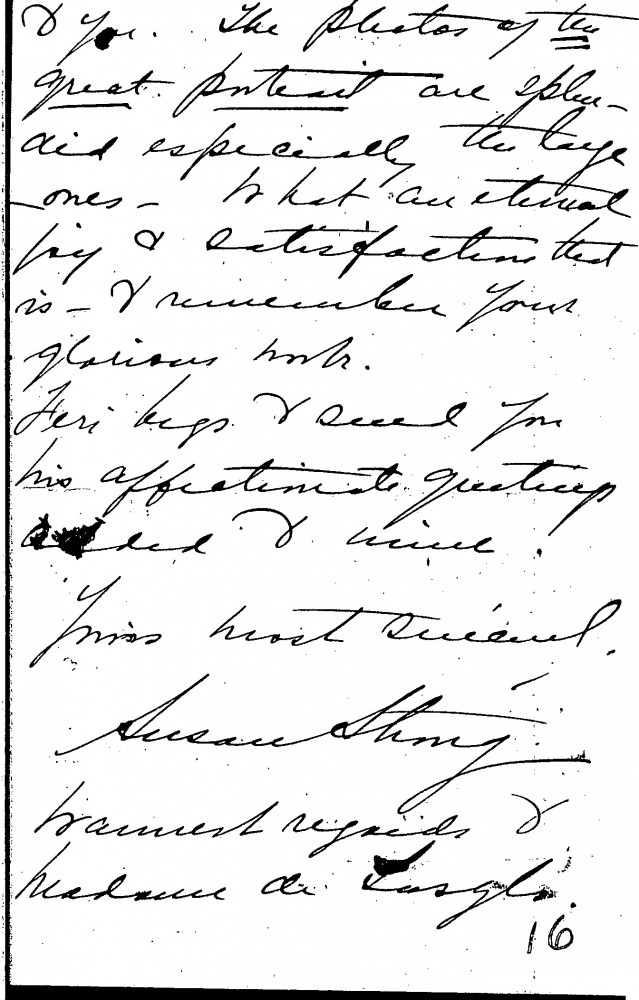 to you. The photos of the
great portrait are splen-
did especially the large
ones - What an eternal
joy & satisfaction that
is - to remember your
glorious work.
Feri begs to send you
his affectionate greetings
added to mine.
Yours most sincerel.
Susan Strong
Warmest regards to
Madame de Laszlo.
16